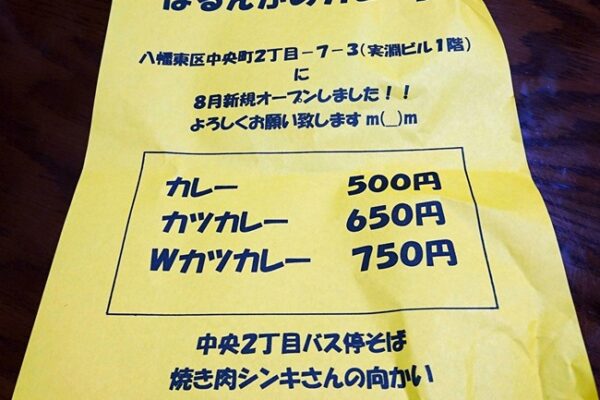 八幡東区中央町2丁目-7-3(実淵ビル1階)
に
8月新規オープンしました!!
よろしくお願い致しますm(__)m
カレー 500円
カツカレー 650円
Wカツカレー 750円
中央2丁目バス停そば
焼き肉シンキさんの向かい